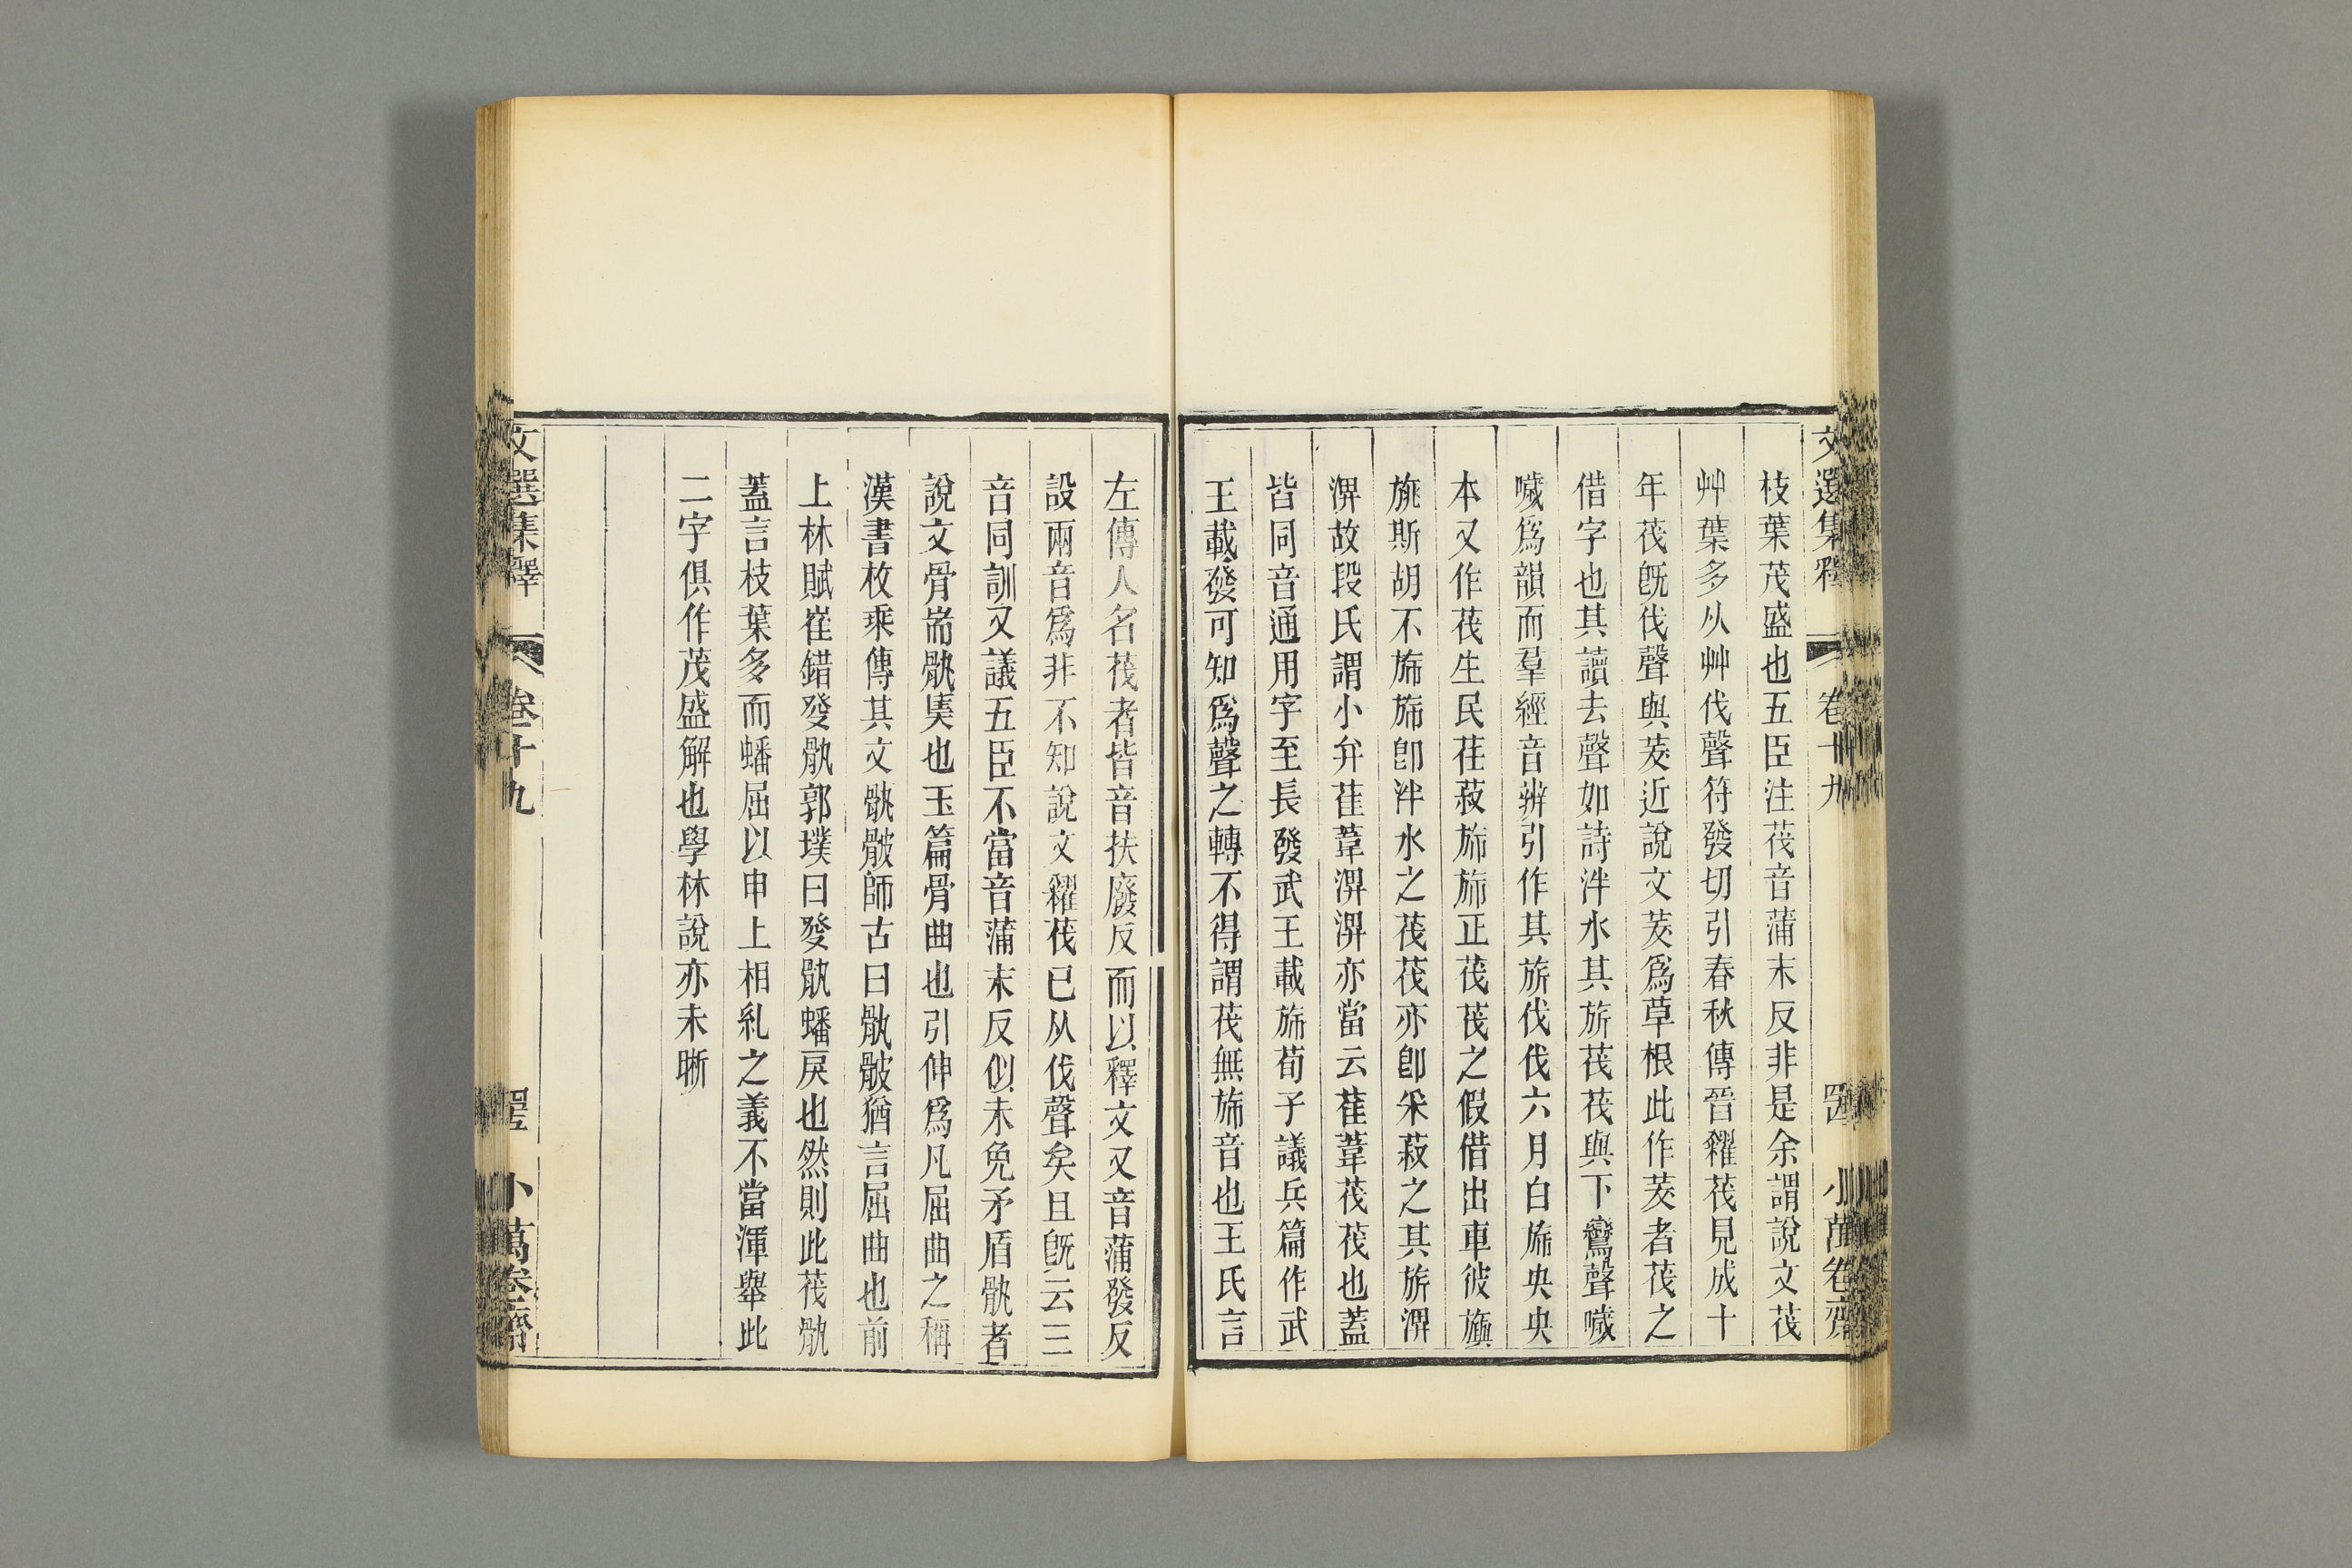 文選集釋 卷十九 四 小萬卷齋
枝葉茂盛也五臣注茷音蒲末反非是余謂說文茷
艸葉多从艸伐聲符發切引春秋傳晉糴茷見成十
年茷旣伐聲與茇近說文茇爲草根此作茇者茷之
借字也其讀去聲如詩泮水其旂茷茷與下鸞聲噦
噦爲韻而羣經音辨引作其旂伐伐六月白旆央央
本又作茷生民荏菽旆旆正茷茷之假借出車彼旟
旐斯胡不旆旆卽泮水之茷茷亦卽采菽之其旂淠
淠故段氏謂小弁萑葦淠淠亦當云萑葦茷茷也蓋
皆同音通用字至長發武王載旆荀子議兵篇作武
王載發可知爲聲之轉不得謂茷無旆音也王氏言
左傳人名茷者皆音扶廢反而以釋文又音蒲發反
設兩音爲非不知說文糴茷已从伐聲矣且旣云三
音同訓又議五臣不當音蒲末反似未免矛盾骫者
說文骨耑骫奊也玉篇骨曲也引伸爲凡屈曲之稱
漢書枚乘傳其文骫骳師古曰骫骳猶言屈曲也前
上林賦崔錯癹骫郭璞曰癹骫蟠戾也然則此茷骫
蓋言枝葉多而蟠屈以申上相糺之義不當渾舉此
二字俱作茂盛解也學林說亦未晰
文選集釋 卷十九 小萬卷齋